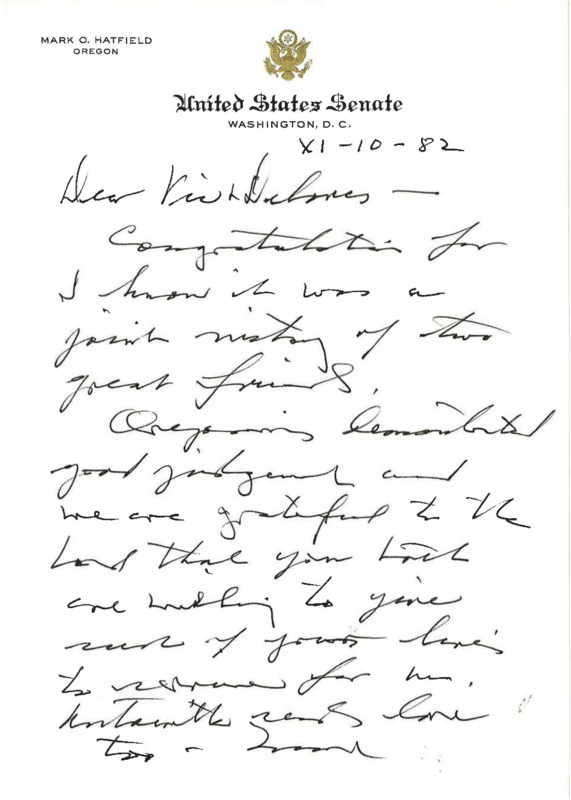 MARK O. HATFIELD
OREGON
United States Senate
WASHINGTON, D. C.
XI-10-82
Dear Vic & Delores —
Congratulations for
I know it was a
joint victory of two
great friends.
Oregonians demonstrated
good judgement and
we are grateful to the
Lord that you both
are willing to give
such of yours lives
to service for him.
Antoinette sends love
too -